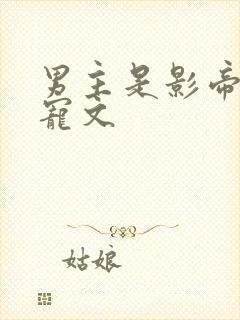 男主是影帝
宠文
姑娘